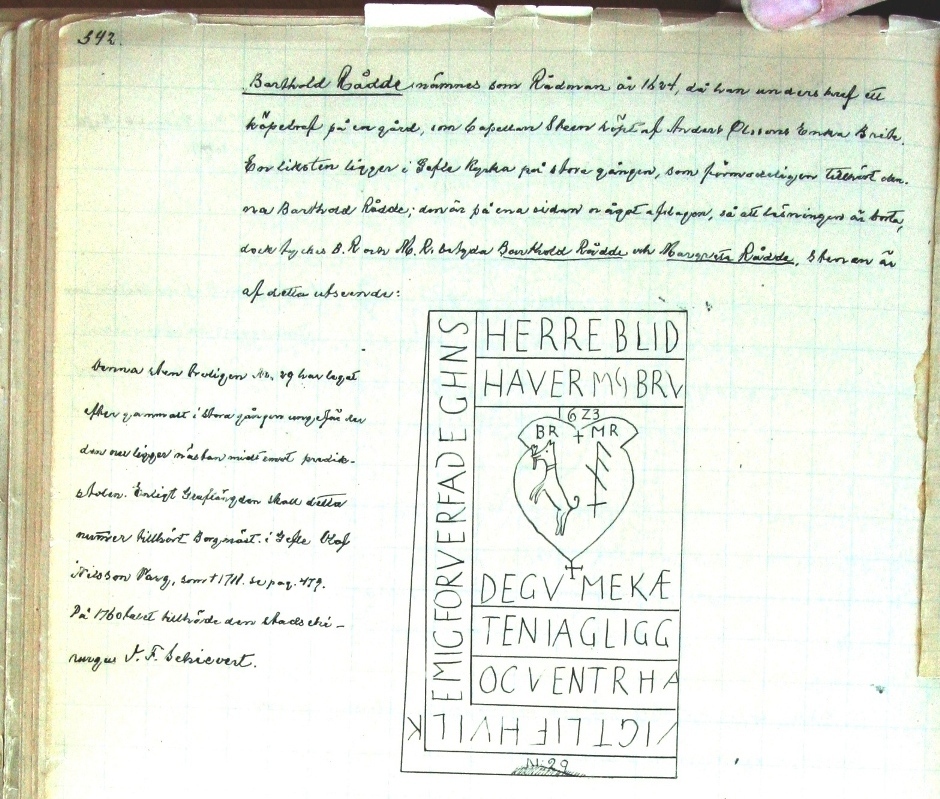 542.
Barthold Rådde nämnes som Rådman år 1624, då han underskref ett
köpebref på en gård, som Capellan Steen köpt af Anders Olssons Enka Brita.
En liksten ligger i Gefle Kyrka på stora gången, som förmodeligen tillhört den-
na Barthold Rådde; den är på ena sidan något afslagen, så att läsningen är borta,
dock tyckes B. R och M. R. betyda Barthold Rådde och Margreta Rådde. Stenen är
af detta utseende:
Denna sten troligen No. 29 har legat
efter gammalt i stora gången ungefär der
den nu ligger nästan midt emot predik-
stolen. Enligt skall detta
nummer tillhört Borgmäst. i Gefle Olof
Nilsson Warg, som † 1711. se pag. 479.
På 1760 talet tillhörde den stadschi-
rurgus J. F. Schievert.
HERRE BLID
HAVER MIG BRV
1623
BR + MR
DEGV MEKÆ
TENIAGLIGG
OCVENTRHA
VIGTLIFHVILK
EMIGFORVERFADE GHNS
N: 29